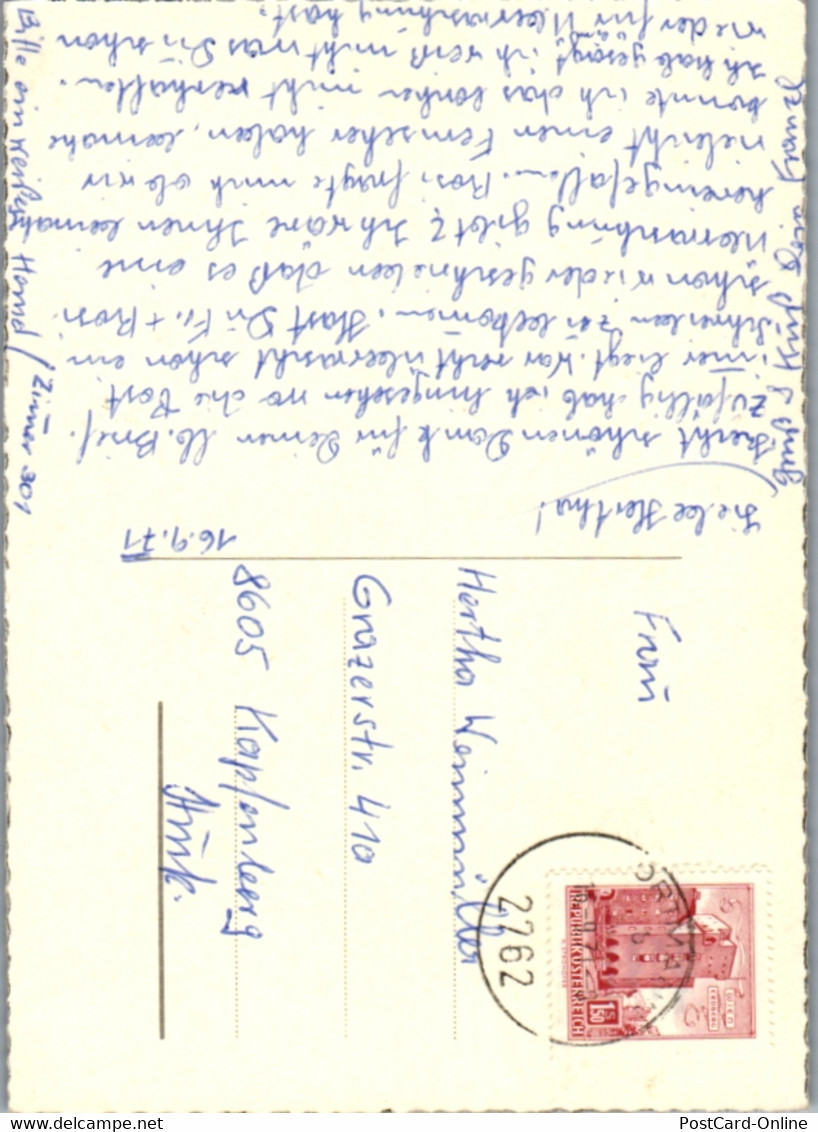 16.9.71
Liebe Hertha!
Recht schönen Dank für Deinen lb. Brief.
Zufällig hab ich hingesehen wo die Post
immer liegt. War recht überrascht schon ein
Schreiben zu bekomen. Hast Du Fr. + Rosi
schon wieder geschrieben daß es eine
Überraschung gibt? Ich wäre Ihnen beinahe
hereingefallen. Rosi fragte mich ob wir
vieleicht einen Fernseher haben, beinahe
konnte ich das lachen nicht verhalten.
Ich hab gesagt ich weiß nicht was Du schon
wieder für Überraschung hast.
Gruß u. Kuß
Bitte ein weißes Hemd / Zimmer 301
Frau
Hertha Weinmüller
Grazerstr. 410
8605 Kapfenberg
Stmk.
ORTMANN
2762
REPUBLIK ÖSTERREICH
S 1.50
WIEN
ERDBERG
PostCard-Online